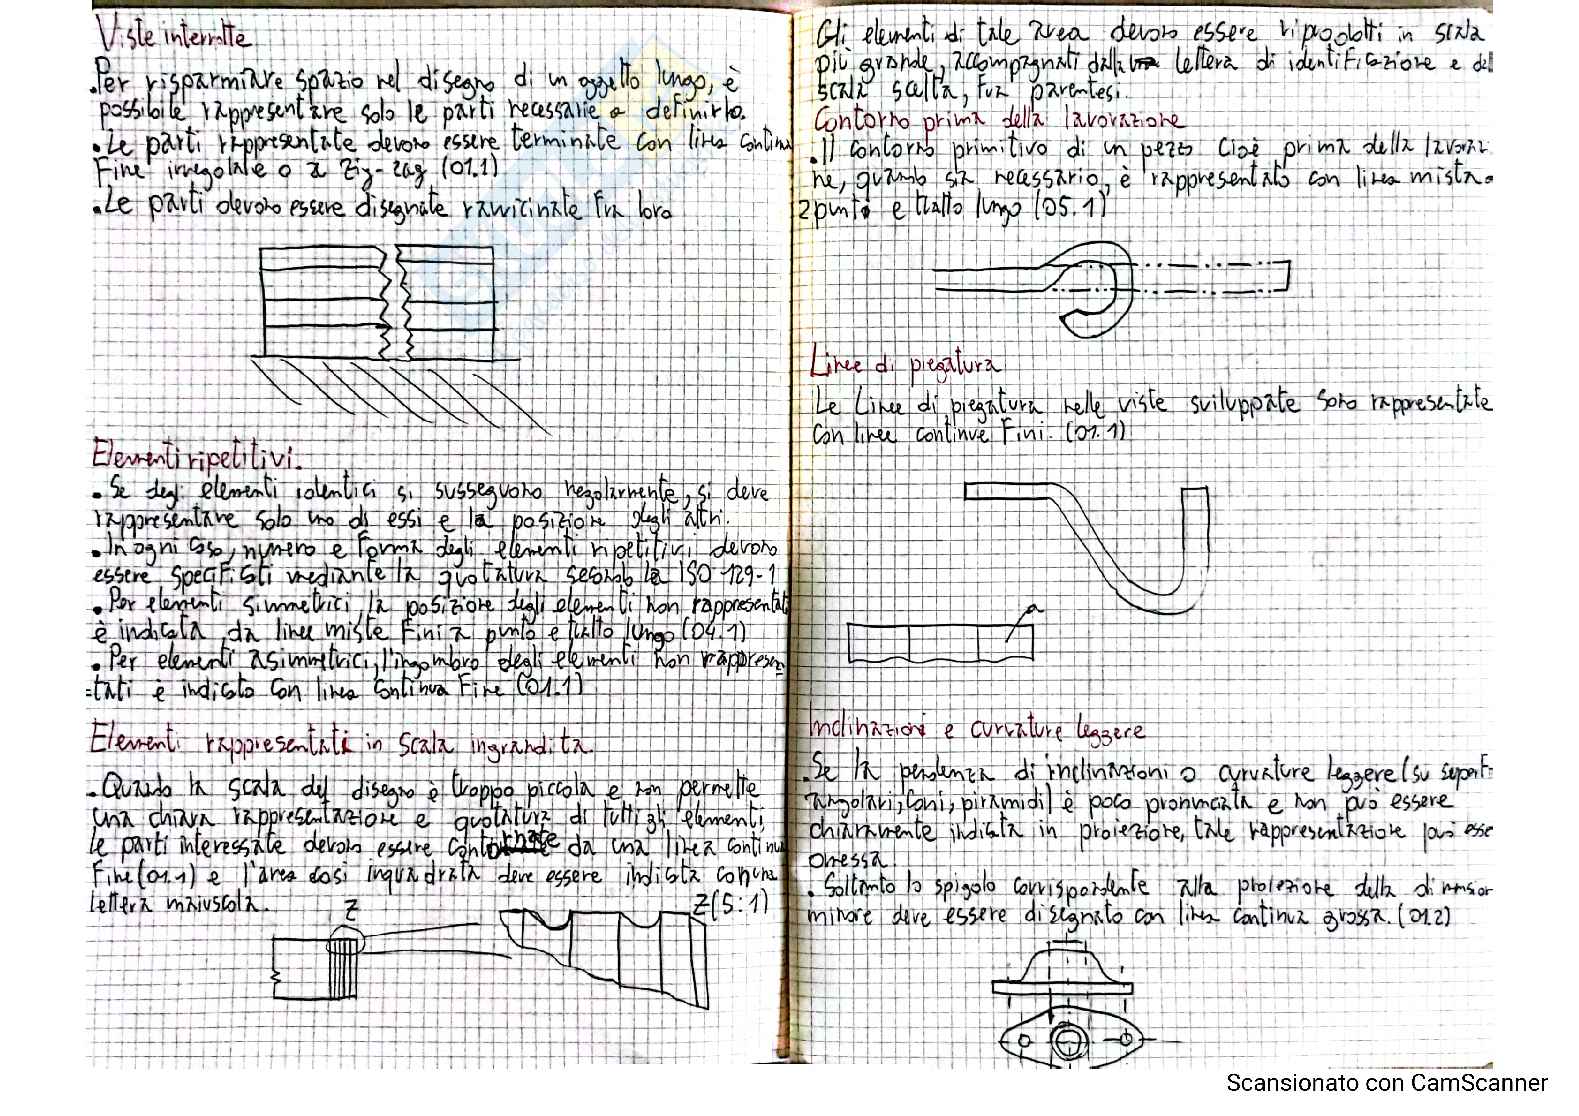 Viste interrotte
.Per risparmiare spazio nel disegno di un oggetto lungo, è
possibile rappresentare solo le parti necessarie a definirlo.
.Le parti rappresentate devono essere terminate con linea continua
Fine irregolare o a zig-zag (01.1)
.Le parti devono essere disegnate ravvicinate fra loro
Elementi ripetitivi.
.Se degli elementi identici si susseguono regolarmente, si deve
rappresentare solo uno di essi e la posizione degli altri.
.In ogni caso, numero e forma degli elementi ripetitivi devono
essere specificati mediante la quotatura secondo la ISO 129-1
.Per elementi simmetrici, la posizione degli elementi non rappresentati
è indicata da linee miste Fini a punto e tratto lungo (04.1)
.Per elementi asimmetrici, l'ingombro degli elementi non rappresen
=tati è indicato con linea continua Fine (01.1)
Elementi rappresentati in scala ingrandita.
.Quando la scala del disegno è troppo piccola e non permette
una chiara rappresentazione e quotatura di tutti gli elementi,
le parti interessate devono essere contornate da una linea continua
Fine (01.1) e l'area così inquadrata deve essere indicata con una
lettera maiuscola.
Z
Z(5:1)
Gli elementi di tale area devono essere riprodotti in scala
più grande, accompagnati dalla lettera di identificazione e del
scala scelta, fra parentesi.
Contorno prima della lavorazione
.Il contorno primitivo di un pezzo cioè prima della lavoraz
ne, quando sia necessario, è rappresentato con linea mista a
2 punti e tratto lungo (05.1)
Linee di piegatura
Le Linee di piegatura nelle viste sviluppate sono rappresentate
con linee continue Fini. (01.1)
a
Inclinazioni e curvature leggere
.Se la pendenza di inclinazioni o curvature leggere (su superf
angolari, coni, piramidi) è poco pronunciata e non può essere
chiaramente indicata in proiezione, tale rappresentazione può esse
omessa.
.Soltanto lo spigolo corrispondente alla proiezione della dimension
minore deve essere disegnato con linea continua grossa. (01.2)
Scansionato con CamScanner